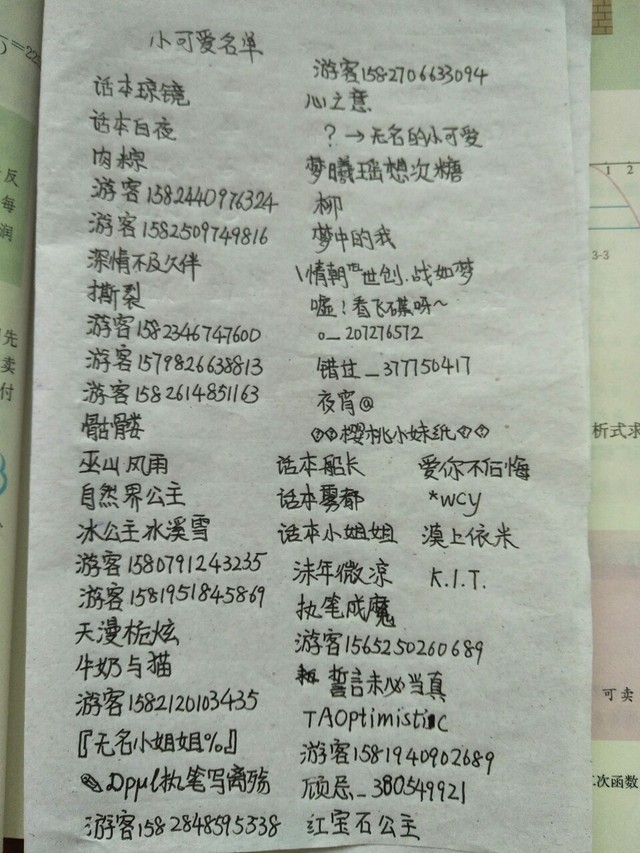 小可爱名单
话本琼镜
话本白夜
肉粽
游客1582440976324
游客1582509749816
深情不及久伴
撕裂
游客1582346747600
游客1579826638813
游客1582614851163
骷髅
巫山风雨
自然界公主
冰公主冰溪雪
游客1580791243235
游客1581951845869
天漫栀炫
牛奶与猫
游客1582120103435
『无名小姐姐%』
✎Dppul执笔写离殇
游客1582848595338
游客1582706633094
心之意
？→无名的小可爱
梦曦瑶想次糖
柳
梦中的我
\情朝世创.战如梦
嘘！香飞碟呀～
o_207276572
错过_377750417
夜宵@
樱桃小妹纸
话本船长
话本雾都
话本小姐姐
沫年微凉
执笔成魔
游客1565250260689
誓言未必当真
TAOptimistic
游客1581940902689
顾忌_380549921
红宝石公主
爱你不后悔
*wcy
漠上依米
K.I.T.
=22
反
每
润
先
卖
付
1 2
3-3
析式求
可卖
二次函数